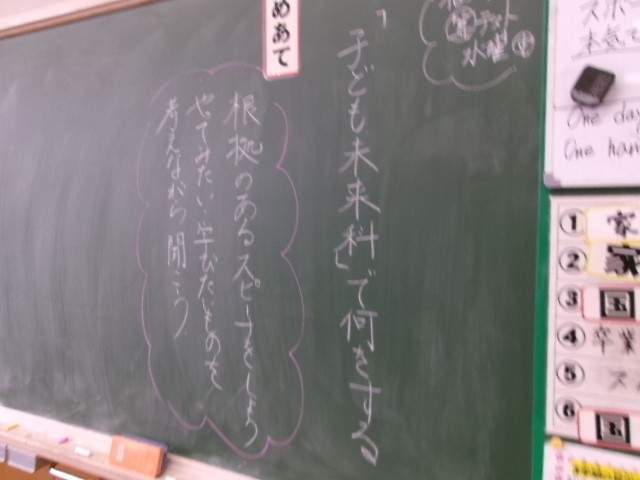 「子ども未来科」で何をする
めあて
根拠のあるスピーチをしよう
やってみたい・学びたいものを
考えながら聞こう
水曜
スポ
本気で
One day
One han
① 家
② 家
③ 国
④ 卒業
⑤ ス
⑥ 国